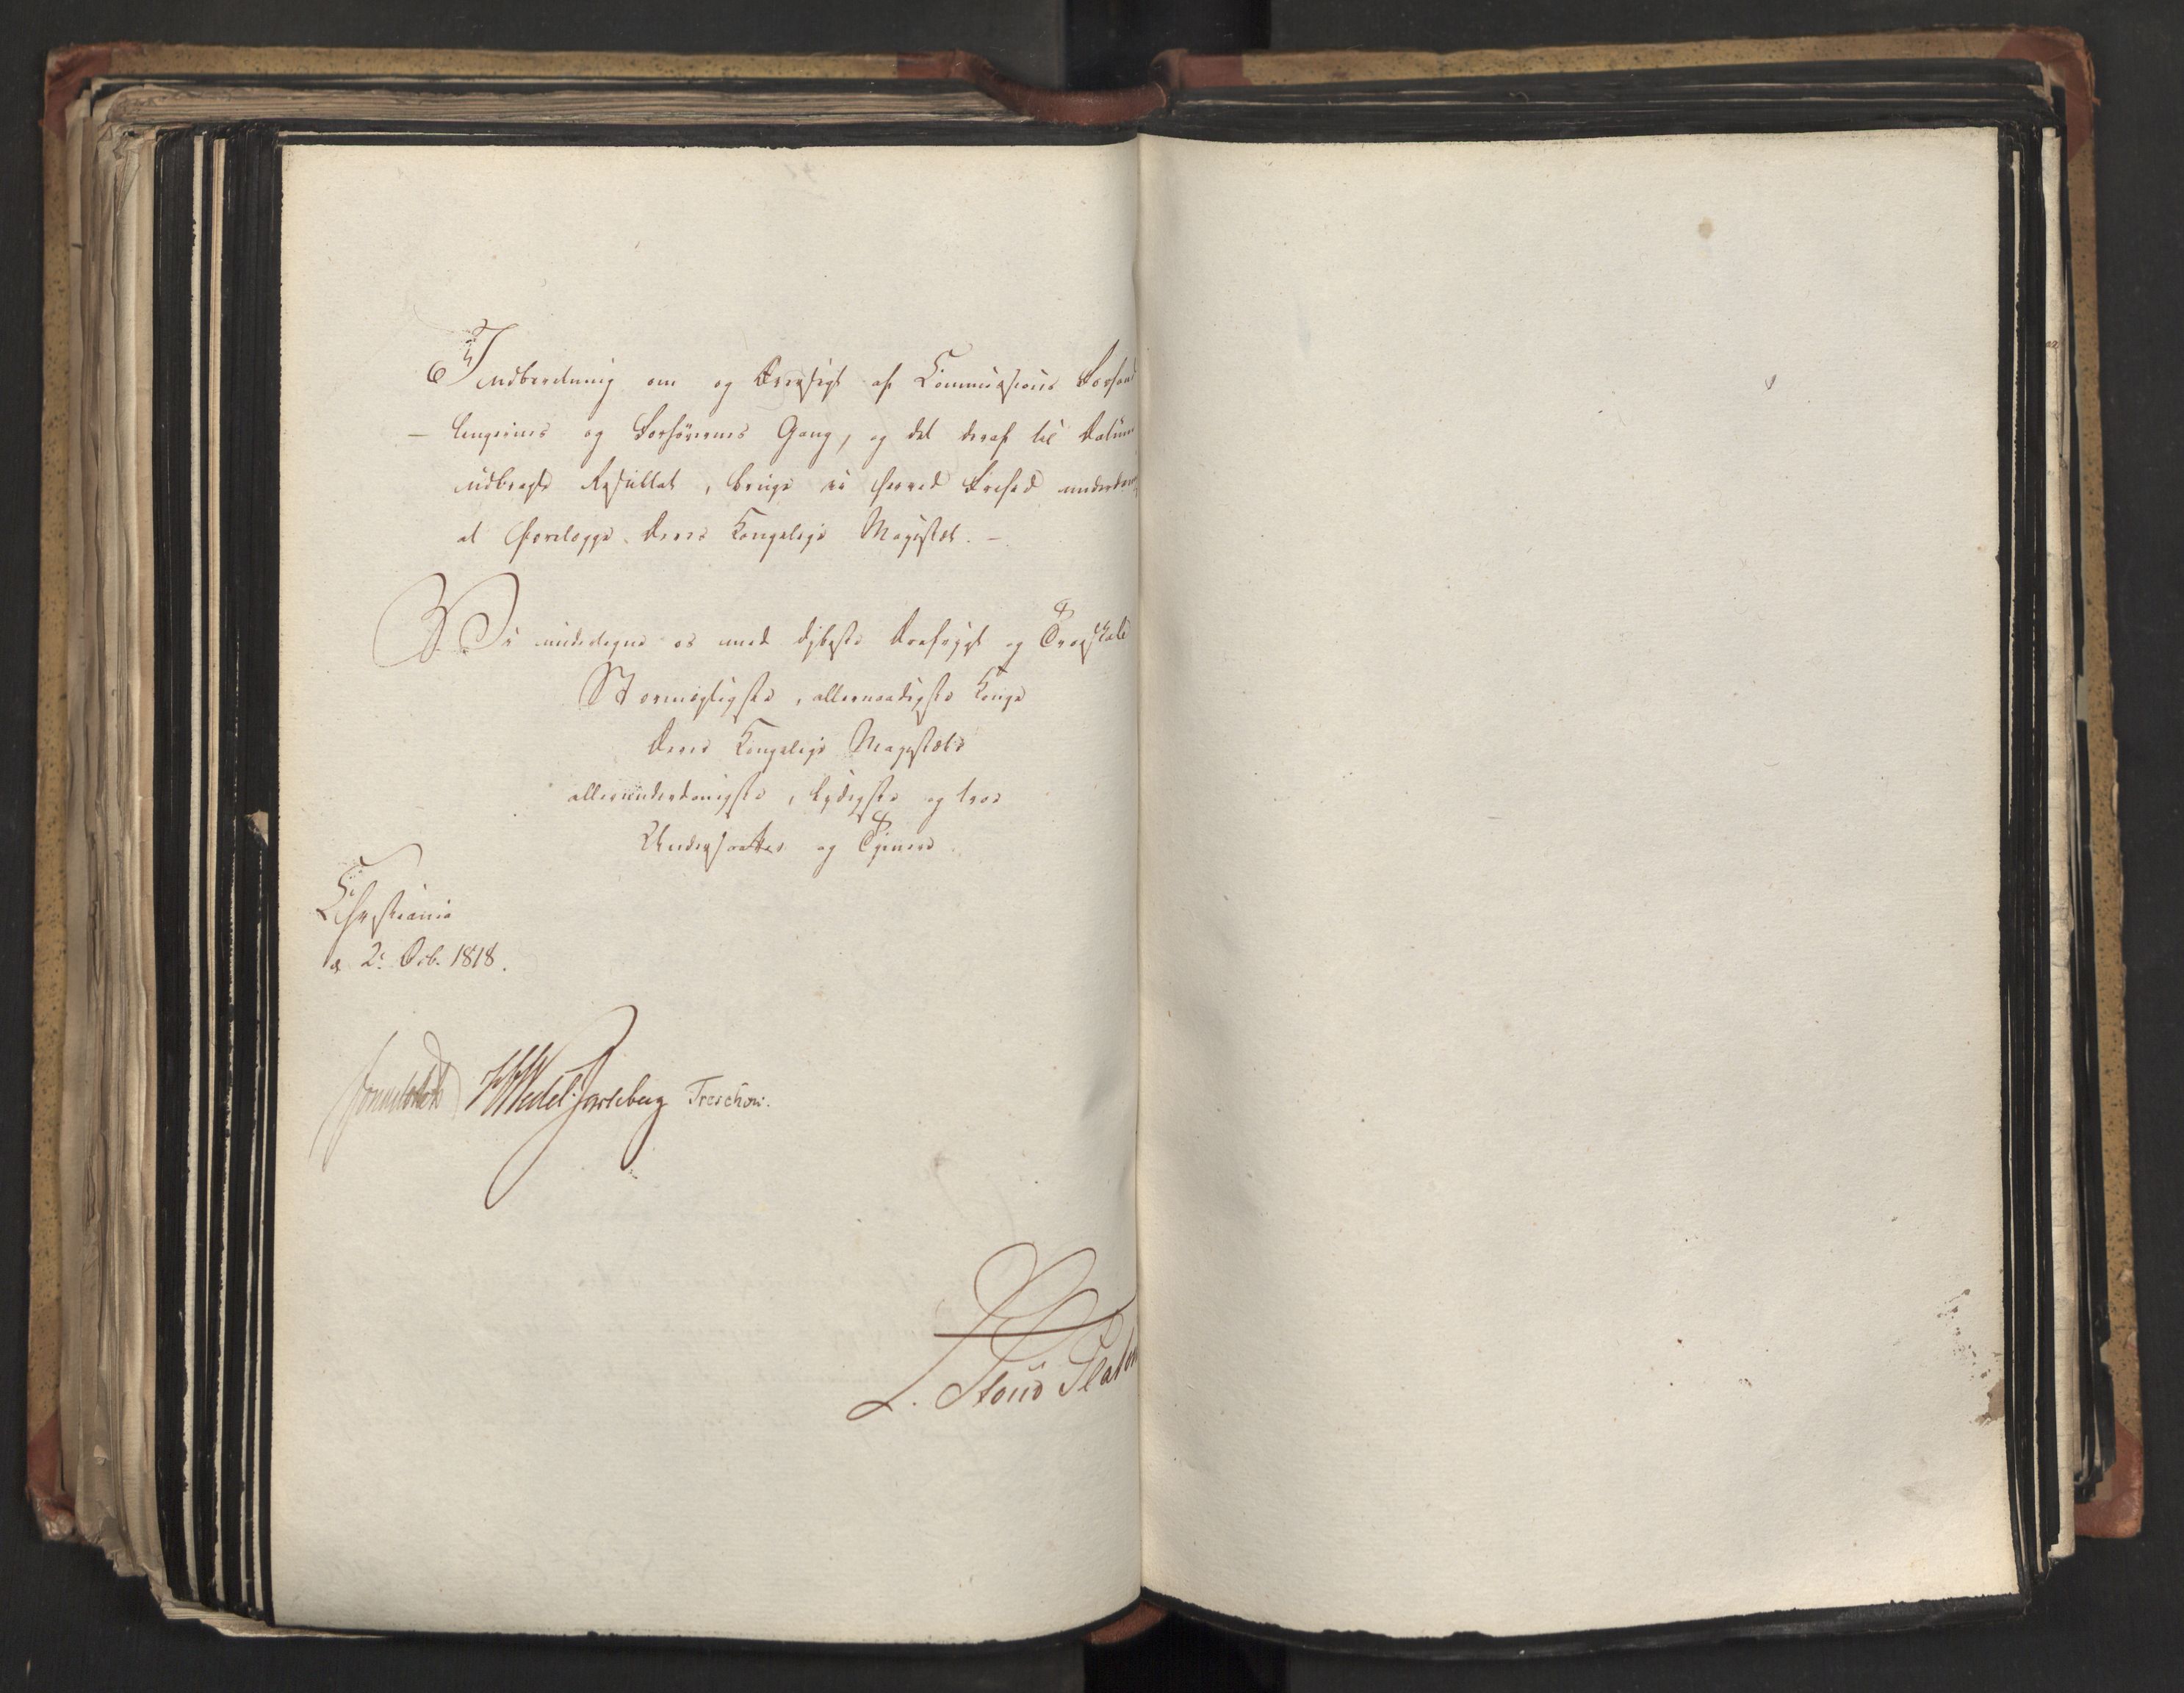 Indberetning om og Oversigt af Commissions Forhand
- lingernes og Forhørernes Gang, og det deraf til Datum
udbragte Resultat, bringe vi herved Forsæt underdan
at forelægge Deres Kongelige Majestæt. -
Vi undertegne os med dybeste Ærefrygt og Troeskab
Stormægtigste, allernaadigste Konge
Deres Kongelige Majestæts
allerunderdanigste, lydigste og troe
Undersaatter og Tjenere
Christiania
d. 2: Octb. 1818.
Sommerhielm HWedel Jarlsberg Treschow.
L. Stoud Platou